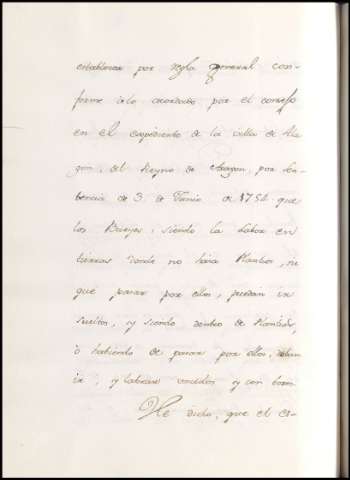 establecer por regla general con-
forme à lo acordado por el consejo
en el expediente de la villa de Ala-
gon, del Reyno de Aragon, por Sen-
tencia de 3 de Junio de 1754 que
los Bueyes, siendo la labor en
tierras donde no haia Plantios, ni
que pasar por ellos, puedan ir
sueltos, y siendo dentro de Plantios,
ò habiendo de pasar por ellos, deban
ir, y labrar uncidos y con
He dicho, que el es-